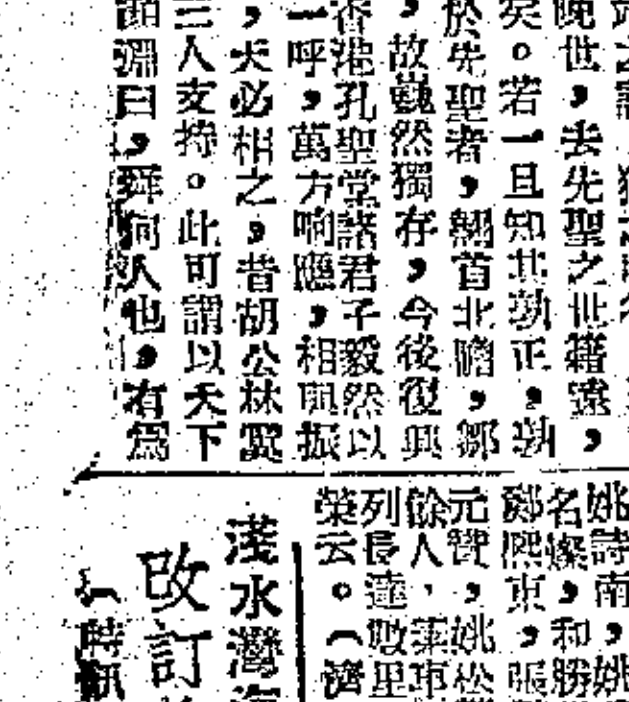 晚世，去先聖之世籍遠，
矣。若一旦知其孰正，孰
於先聖者，翹首北瞻，鄒
，故巍然獨存，今後復興
香港孔聖堂諸君子毅然以
一呼，萬方响應，相與振
，天必相之，昔胡公林翼
三人支持。此可謂以天下
顏淵曰，舜何人也，有為
姚詩南，姚
名燦，和勝
鄭熙東，張
元贊，姚松
餘人，車
列長達數里
榮云。（濟
淺水灣海
改訂
（時訊